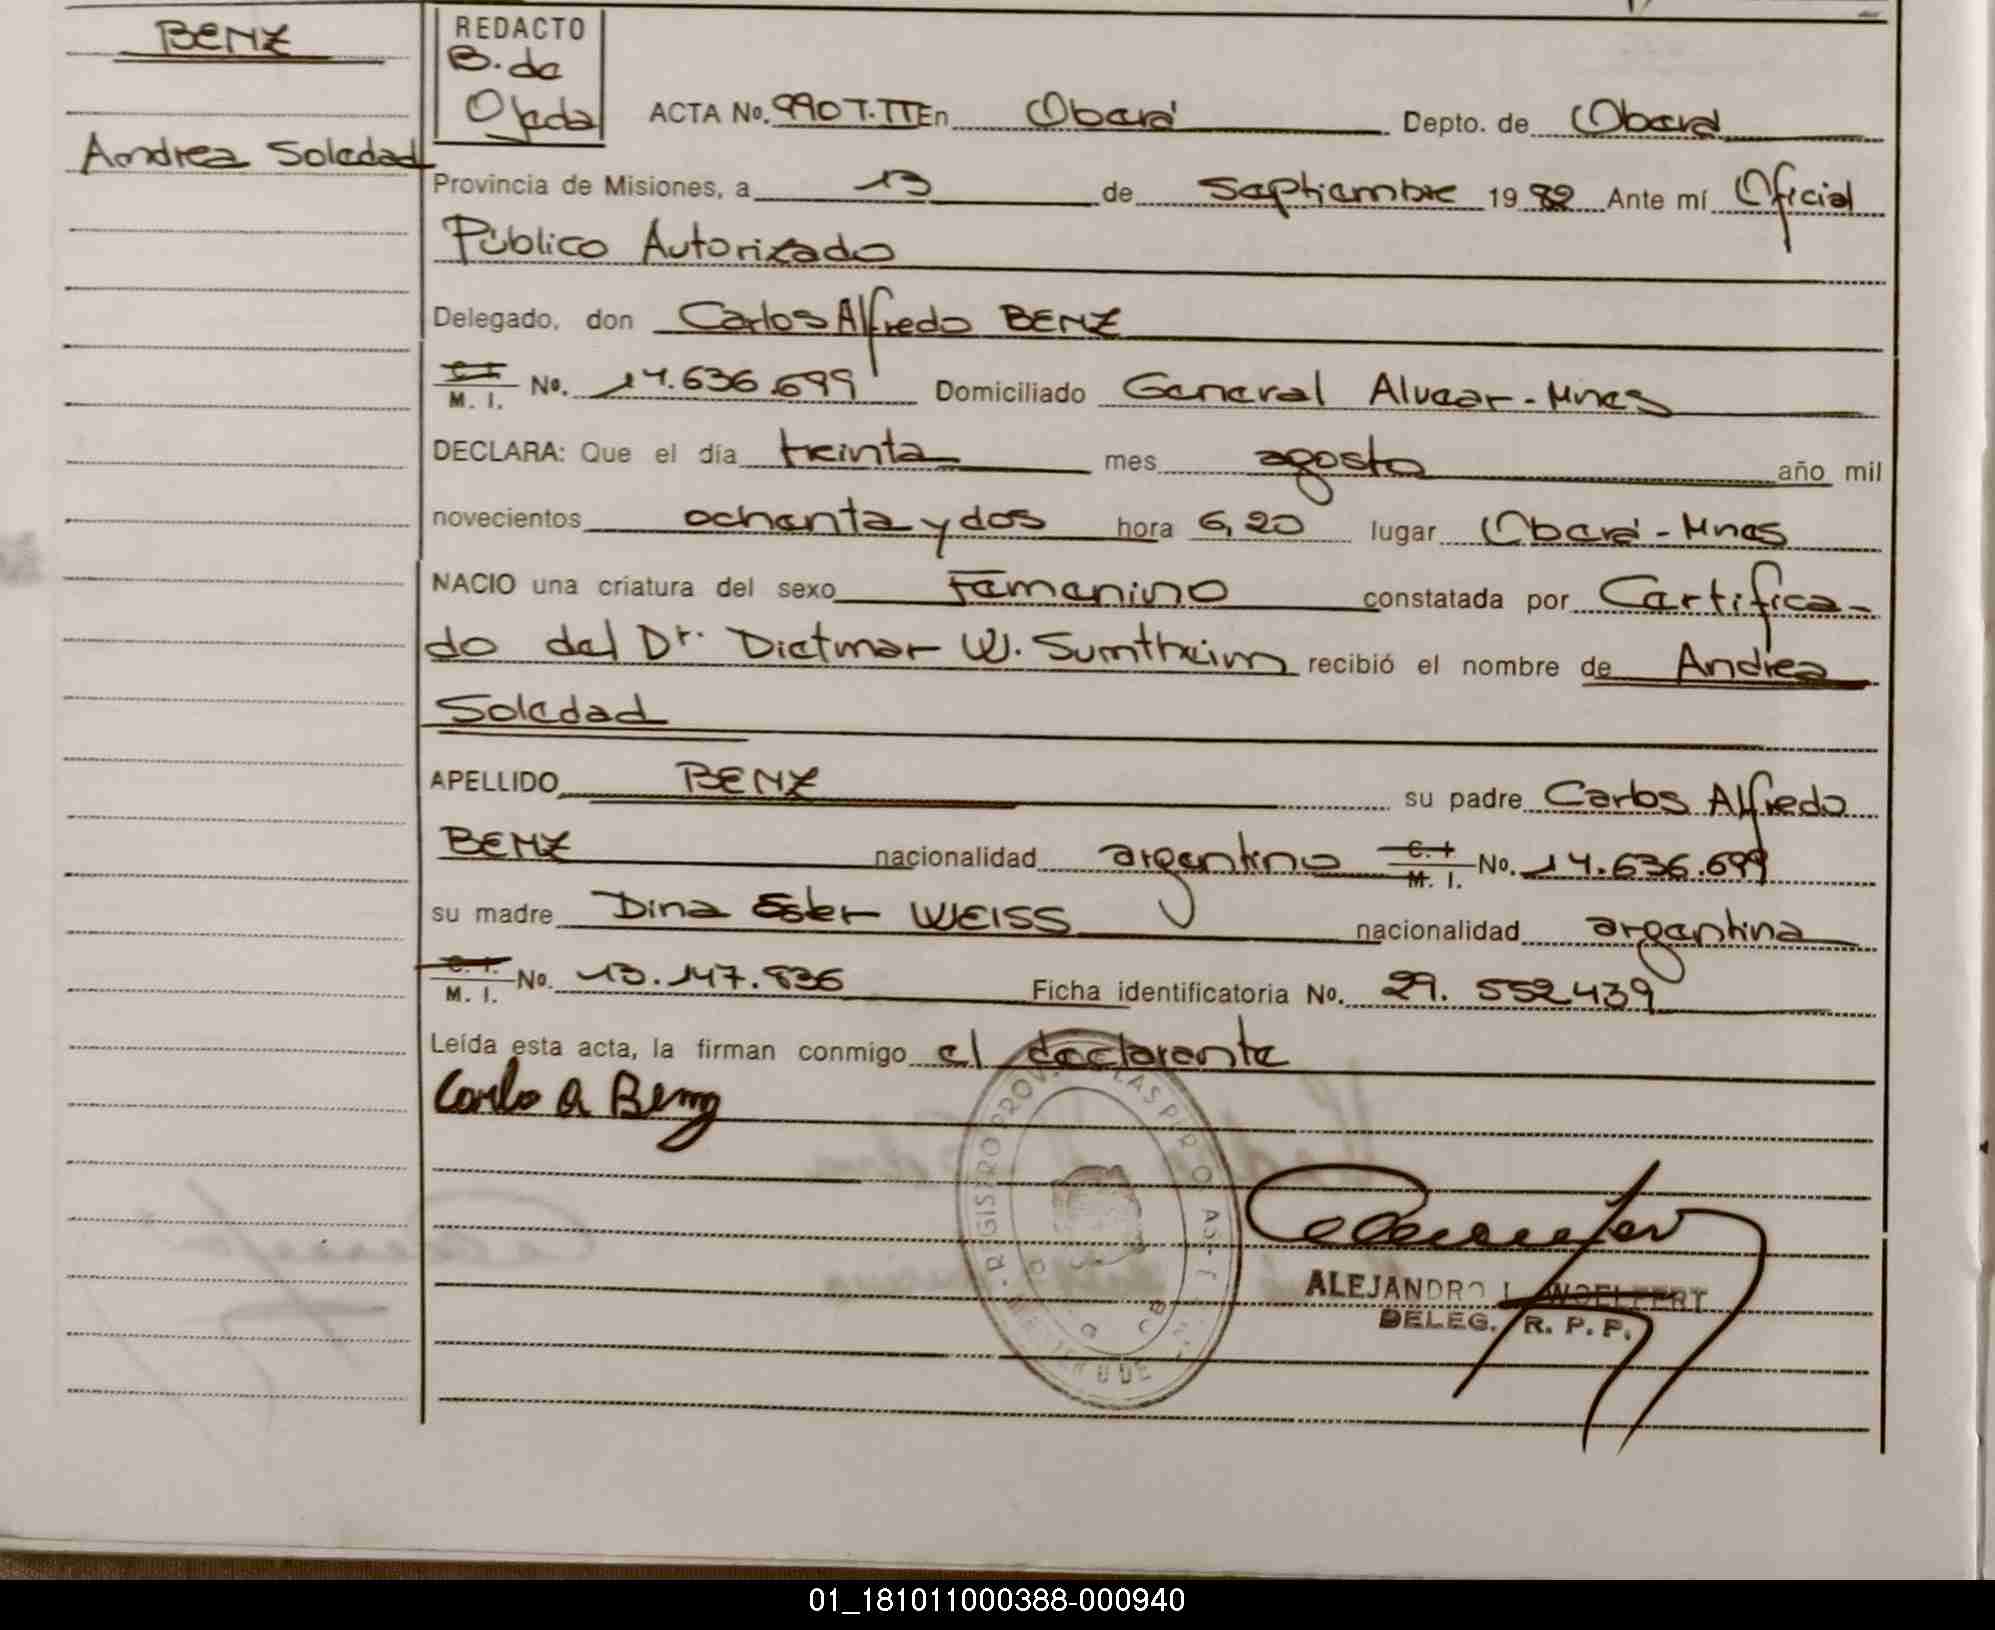 BENZ
Andrea Soledad
REDACTO
B. de
Ojeda
ACTA No. 990 T. II En Oberá Depto. de Oberá
Provincia de Misiones, a 13 de Septiembre 1982 Ante mí Oficial
Público Autorizado
Delegado, don Carlos Alfredo BENZ
C. I.
M. I. No. 14.636.699 Domiciliado General Alvear - Mnes
DECLARA: Que el día treinta mes agosto año mil
novecientos ochenta y dos hora 6,20 lugar Oberá - Mnes
NACIO una criatura del sexo Femenino constatada por Certifica-
do del Dr. Dietmar W. Sumtheim recibió el nombre de Andrea
Soledad
APELLIDO BENZ su padre Carlos Alfredo
BENZ nacionalidad argentino C. I. M. I. No. 14.636.699
su madre Dina Ester WEISS nacionalidad argentina
C. I.
M. I. No. 13.147.836 Ficha identificatoria No. 29.552439
Leída esta acta, la firman conmigo el declarente
Carlo A Benz
REGISTRO PROV. LAS PERSO
ALEJANDRO L. WOELFERT
DELEG. R. P. P.
01_181011000388-000940